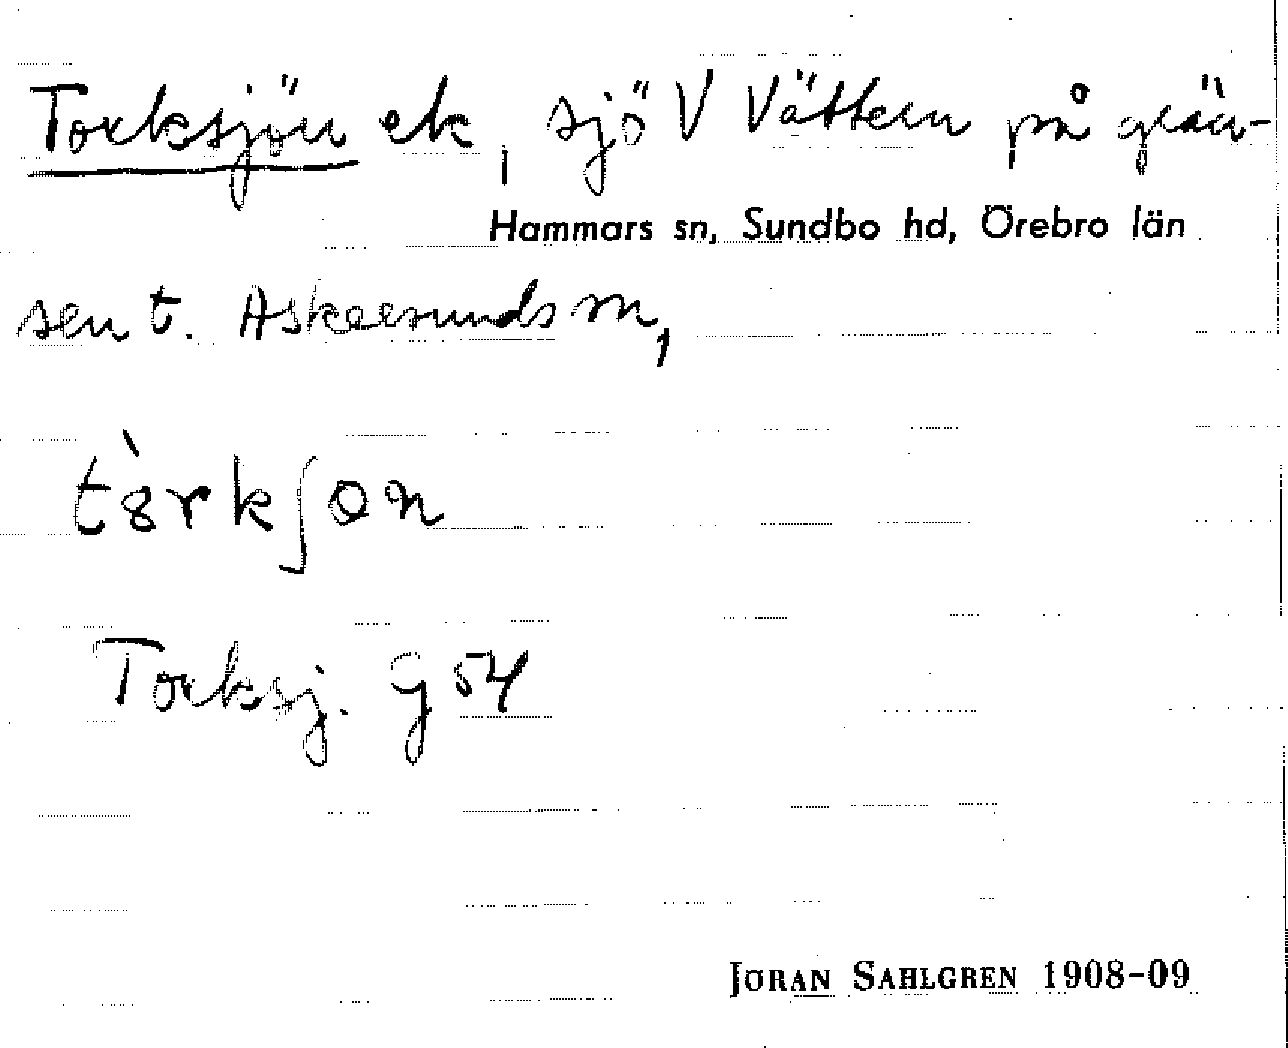 Torksjön ek, sjö V Vättern på grän-
Hammars sn, Sundbo hd, Örebro län
sen t. Askersunds sn,
tɵ̀rkʃɵn
Torksj. G 54
JÖRAN SAHLGREN 1908-09